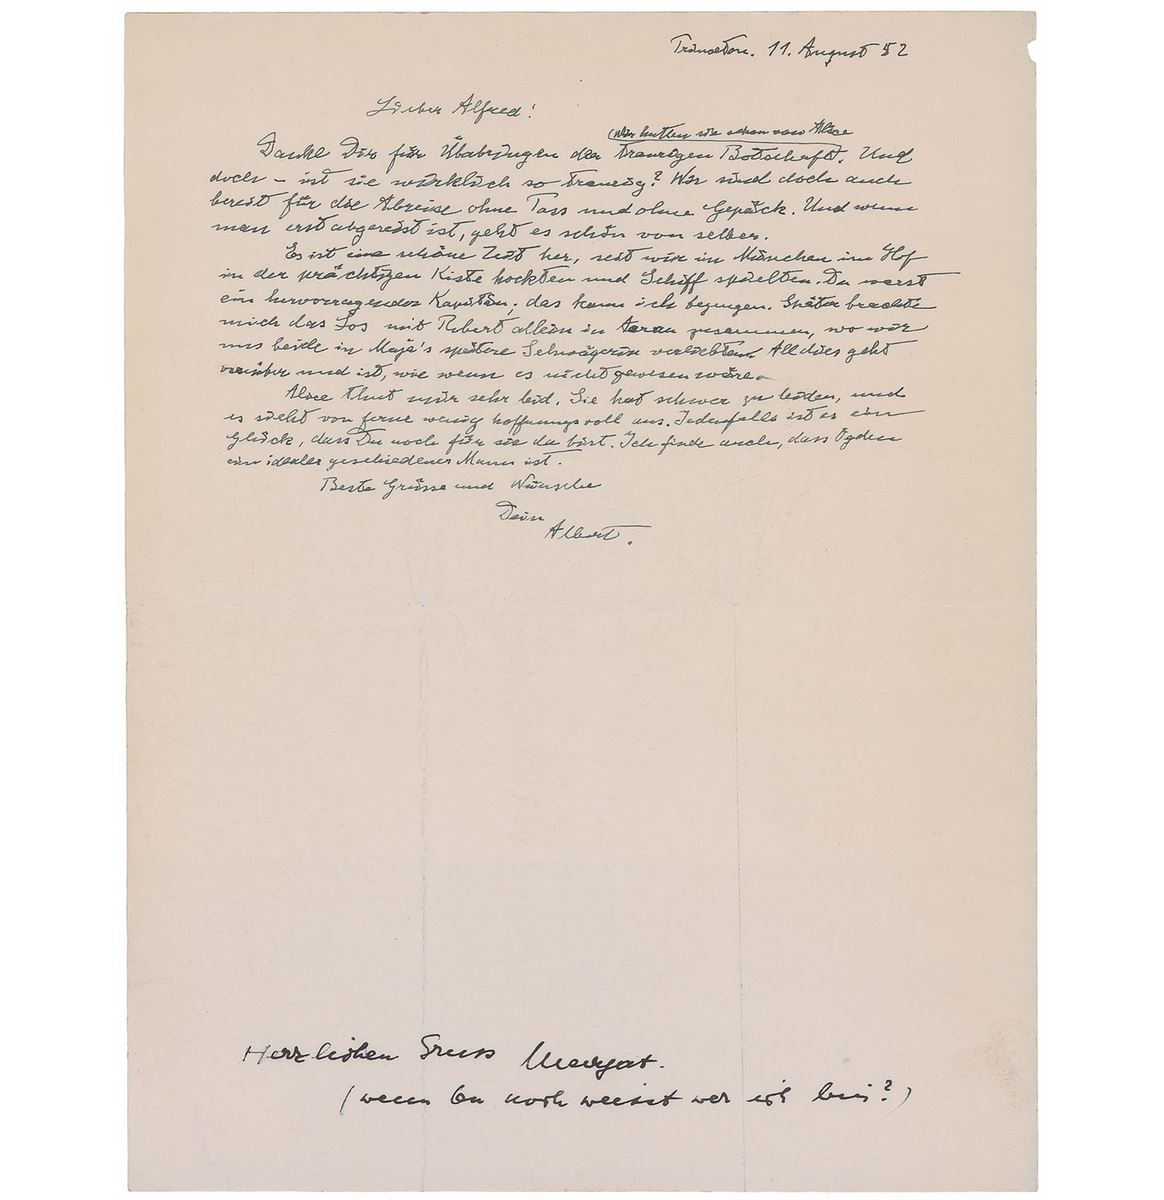 Princeton. 11. August 52
Lieber Alfred!
(Wir hatten sie schon von Alice
Danke Dir für Überbringen der traurigen Botschaft. Und
doch – ist sie wirklich so traurig? Wir sind doch auch
bereit für die Abreise ohne Pass und ohne Gepäck. Und wenn
man erst abgereist ist, geht es schön von selber.
Es ist eine schöne Zeit her, seit wir in München im Hof
in der prächtigen Kiste hockten und Schiff spielten. Du warst
ein hervorragender Kapitän, das kann ich bezeugen. Später brachte
mich das Los mit Robert allein in Aarau zusammen, wo wir
uns beide in Maja's spätere Schwägerin verliebten. All dies geht
vorüber und ist, wie wenn es nicht gewesen wäre.
Alice thut mir sehr leid. Sie hat schwer zu leiden, und
es sieht von ferne wenig hoffnungsvoll aus. Jedenfalls ist es ein
Glück, dass Du noch für sie da bist. Ich finde auch, dass Ogden
ein idealer geschiedener Mann ist.
Beste Grüsse und Wünsche
Dein
Albert.
Herzlichen Gruss Margot.
(wenn Du noch weisst wer ich bin?)